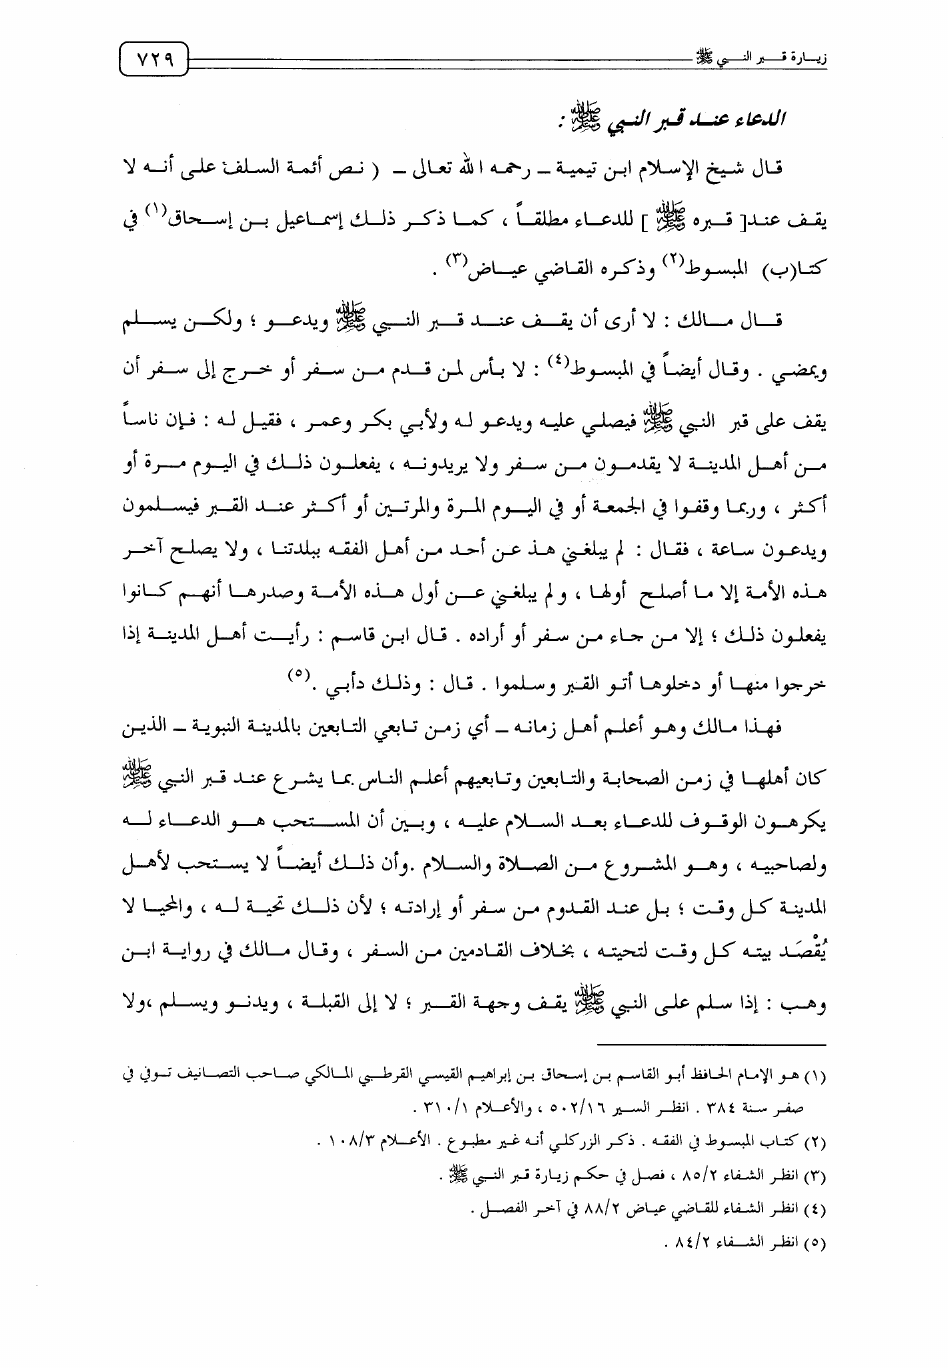 زيارة قبر النبي ﷺ ٧٢٩
الدعاء عند قبر النبي ﷺ :
قال شيخ الإسلام ابن تيمية ــ رحمه الله تعالى ــ ( نص أئمة السلف على أنه لا
يقف عند[ قبره ﷺ ] للدعاء مطلقاً ، كما ذكر ذلك إسماعيل بن إسحاق(١) في
كتا(ب) المبسوط(٢) وذكره القاضي عياض(٣) .
قال مالك : لا أرى أن يقف عند قبر النبي ﷺ ويدعو ؛ ولكن يسلم
ويمضي . وقال أيضاً في المبسوط(٤) : لا بأس لمن قدم من سفر أو خرج إلى سفر أن
يقف على قبر النبي ﷺ فيصلي عليه ويدعو له ولأبي بكر وعمر ، فقيل له : فإن ناساً
من أهل المدينة لا يقدمون من سفر ولا يريدونه ، يفعلون ذلك في اليوم مرة أو
أكثر ، وربما وقفوا في الجمعة أو في اليوم المرة والمرتين أو أكثر عند القبر فيسلمون
ويدعون ساعة ، فقال : لم يبلغني هذ عن أحد من أهل الفقه ببلدتنا ، ولا يصلح آخر
هذه الأمة إلا ما أصلح أولها ، ولم يبلغني عن أول هذه الأمة وصدرها أنهم كانوا
يفعلون ذلك ؛ إلا من جاء من سفر أو أراده . قال ابن قاسم : رأيت أهل المدينة إذا
خرجوا منها أو دخلوها أتو القبر وسلموا . قال : وذلك دأبي .(٥)
فهذا مالك وهو أعلم أهل زمانه ــ أي زمن تابعي التابعين بالمدينة النبوية ــ الذين
كان أهلها في زمن الصحابة والتابعين وتابعيهم أعلم الناس بما يشرع عند قبر النبي ﷺ
يكرهون الوقوف للدعاء بعد السلام عليه ، وبين أن المستحب هو الدعاء له
ولصاحبيه ، وهو المشروع من الصلاة والسلام .وأن ذلك أيضاً لا يستحب لأهل
المدينة كل وقت ؛ بل عند القدوم من سفر أو إرادته ؛ لأن ذلك تحية له ، والمحيا لا
يُقْصَد بيته كل وقت لتحيته ، بخلاف القادمين من السفر ، وقال مالك في رواية ابن
وهب : إذا سلم على النبي ﷺ يقف وجهة القبر ؛ لا إلى القبلة ، ويدنو ويسلم ،ولا
(١) هو الإمام الحافظ أبو القاسم بن إسحاق بن إبراهيم القيسي القرطبي المالكي صاحب التصانيف توفي في
صفر سنة ٣٨٤ . انظر السير ٥٠٢/١٦ ، والأعلام ٣١٠/١ .
(٢) كتاب المبسوط في الفقه . ذكر الزركلي أنه غير مطبوع . الأعلام ١٠٨/٣ .
(٣) انظر الشفاء ٨٥/٢ ، فصل في حكم زيارة قبر النبي ﷺ .
(٤) انظر الشفاء للقاضي عياض ٨٨/٢ في آخر الفصل .
(٥) انظر الشفاء ٨٤/٢ .